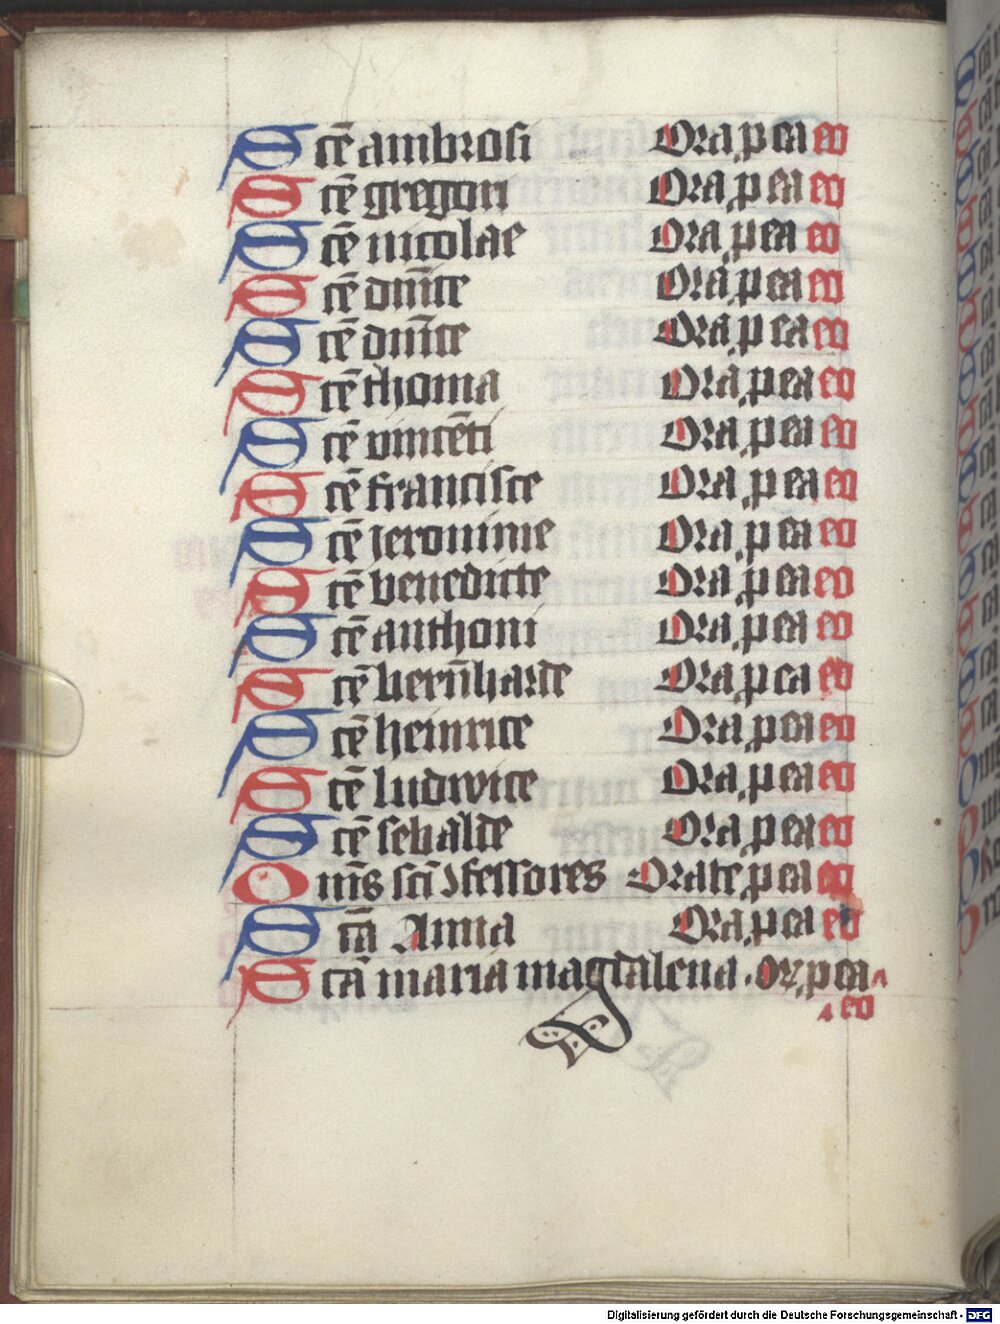 Scē ambrosi Ora p̱ ea eo
Scē gregori Ora p̱ ea eo
Scē nicolae Ora p̱ ea eo
Scē dn̄ice Ora p̱ ea eo
Scē dn̄ice Ora p̱ ea eo
Scē thoma Ora p̱ ea eo
Scē vincēti Ora p̱ ea eo
Scē francisce Ora p̱ ea eo
Scē ieronime Ora p̱ ea eo
Scē benedicte Ora p̱ ea eo
Scē anthoni Ora p̱ ea eo
Scē bern̄harde Ora p̱ ea eo
Scē heinrice Ora p̱ ea eo
Scē ludwice Ora p̱ ea eo
Scē sebalde Ora p̱ ea eo
Om̄s sc̄i ꝯfessores Orate p̱ ea eo
Sc̄a Anna Ora p̱ ea eo
Sc̄a maria magdalena . or̄ p̱ ea
eo
Digitalisierung gefördert durch die Deutsche Forschungsgemeinschaft - DFG